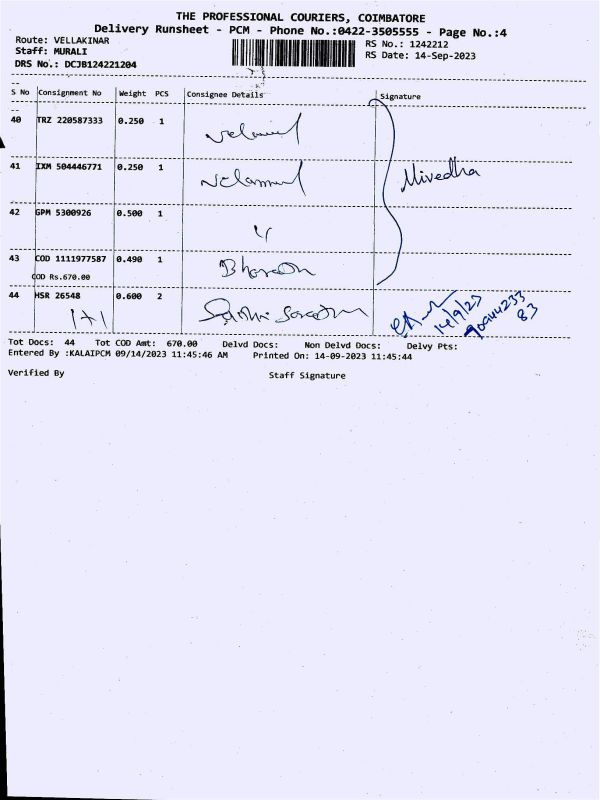 THE PROFESSIONAL COURIERS, COIMBATORE
Delivery Runsheet - PCM - Phone No.:0422-3505555 - Page No.:4
Route: VELLAKINAR
Staff: MURALI
DRS No.: DCJB124221204
RS No.: 1242212
RS Date: 14-Sep-2023
S No Consignment No Weight PCS Consignee Details Signature
40 TRZ 220587333 0.250 1
41 IXM 504446771 0.250 1 Nivedha
42 GPM 5300926 0.500 1
43 COD 1111977587 0.490 1
COD Rs.670.00
44 HSR 26548 0.600 2
1+1 14/9/23
Tot Docs: 44 Tot COD Amt: 670.00 Delvd Docs: Non Delvd Docs: Delvy Pts:
Entered By :KALAIPCM 09/14/2023 11:45:46 AM Printed On: 14-09-2023 11:45:44
Verified By Staff Signature